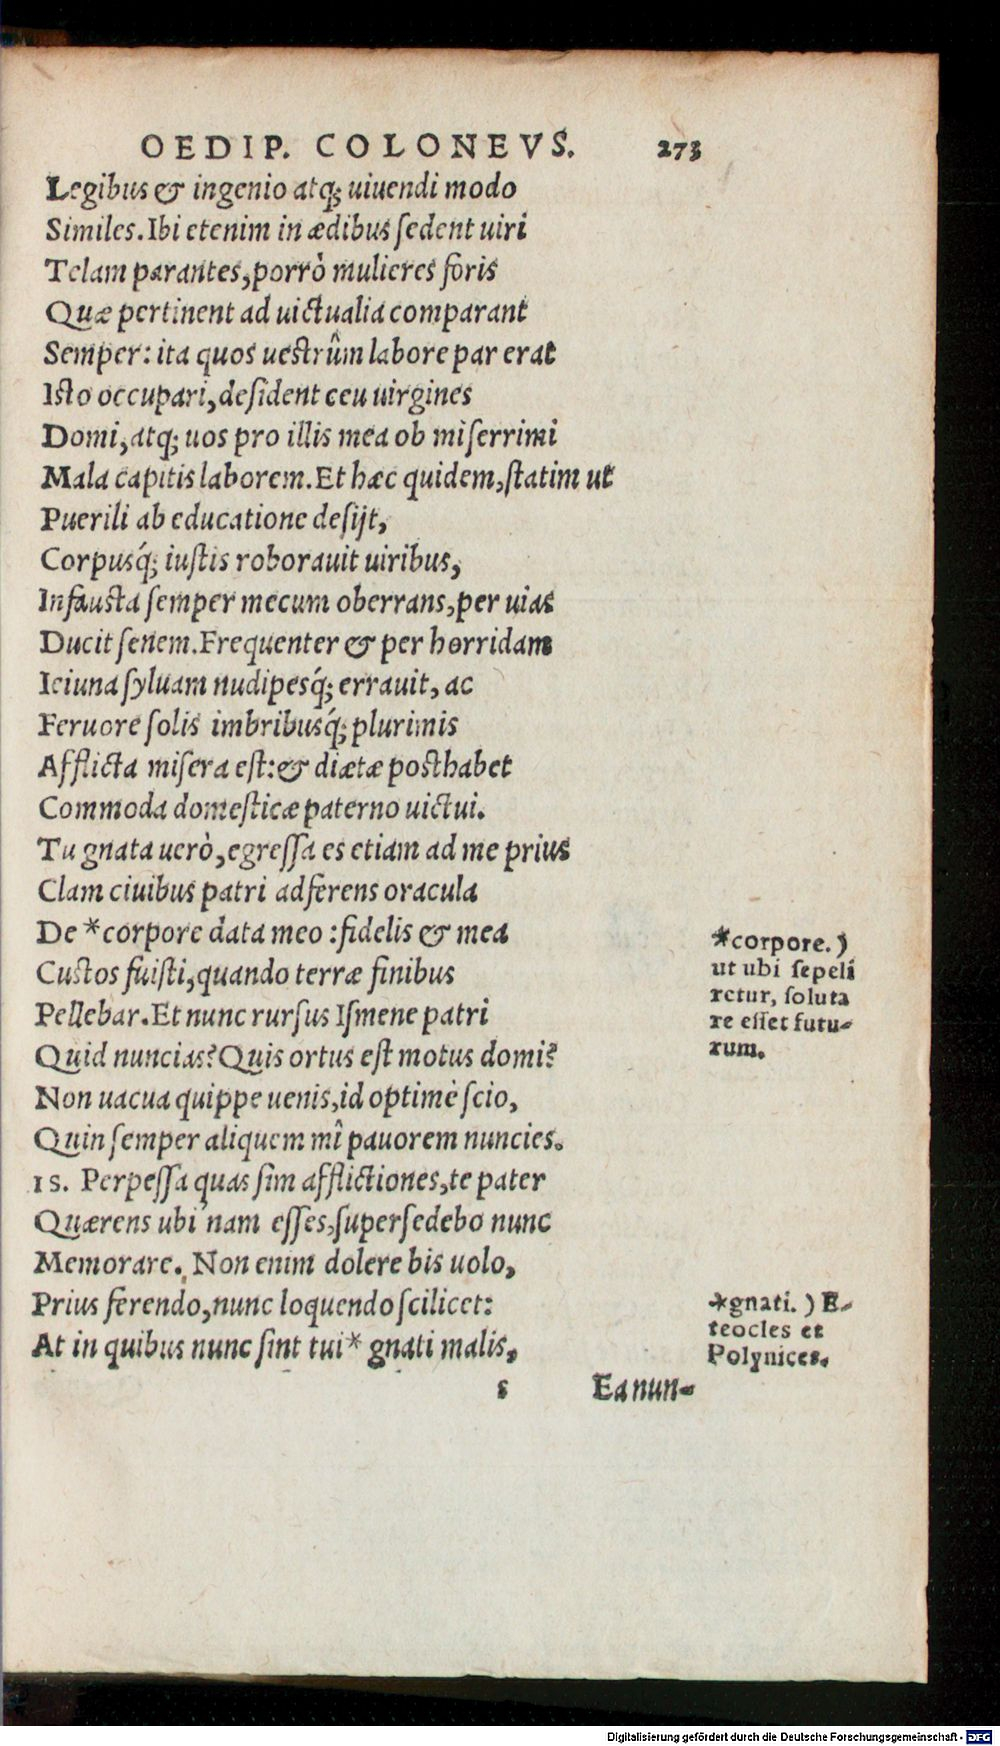 OEDIP. COLONEVS. 273
Legibus & ingenio atq; uiuendi modo
Similes. Ibi etenim in ædibus ſedent uiri
Telam parantes, porrò mulieres foris
Quæ pertinent ad uictualia comparant
Semper: ita quos ueſtrûm labore par erat
Iſto occupari, deſident ceu uirgines
Domi, atq; uos pro illis mea ob miſerrimi
Mala capitis laborem. Et hæc quidem, ſtatim ut
Puerili ab educatione deſijt,
Corpusq́; iuſtis roborauit uiribus,
Infauſta ſemper mecum oberrans, per uias
Ducit ſenem. Frequenter & per horridam
Ieiuna ſyluam nudipesq́; errauit, ac
Feruore ſolis imbribusq́; plurimis
Afflicta miſera eſt: & diætæ poſthabet
Commoda domeſticæ paterno uictui.
Tu gnata uerò, egreſſa es etiam ad me prius
Clam ciuibus patri adferens oracula
De *corpore data meo: fidelis & mea
Cuſtos fuiſti, quando terræ finibus
Pellebar. Et nunc rurſus Iſmene patri
Quid nuncias? Quis ortus eſt motus domi?
Non uacua quippe uenis, id optimè ſcio,
Quin ſemper aliquem mî pauorem nuncies.
IS. Perpeſſa quas ſim afflictiones, te pater
Quærens ubi nam eſſes, ſuperſedebo nunc
Memorare. Non enim dolere bis uolo,
Prius ferendo, nunc loquendo ſcilicet:
At in quibus nunc ſint tui* gnati malis,
s Ea nun-
*corpore.)
ut ubi ſepeli
retur, ſoluta
re eſſet futu-
rum.
*gnati.) E-
teocles et
Polynices.
Digitalisierung gefördert durch die Deutsche Forschungsgemeinschaft - DFG